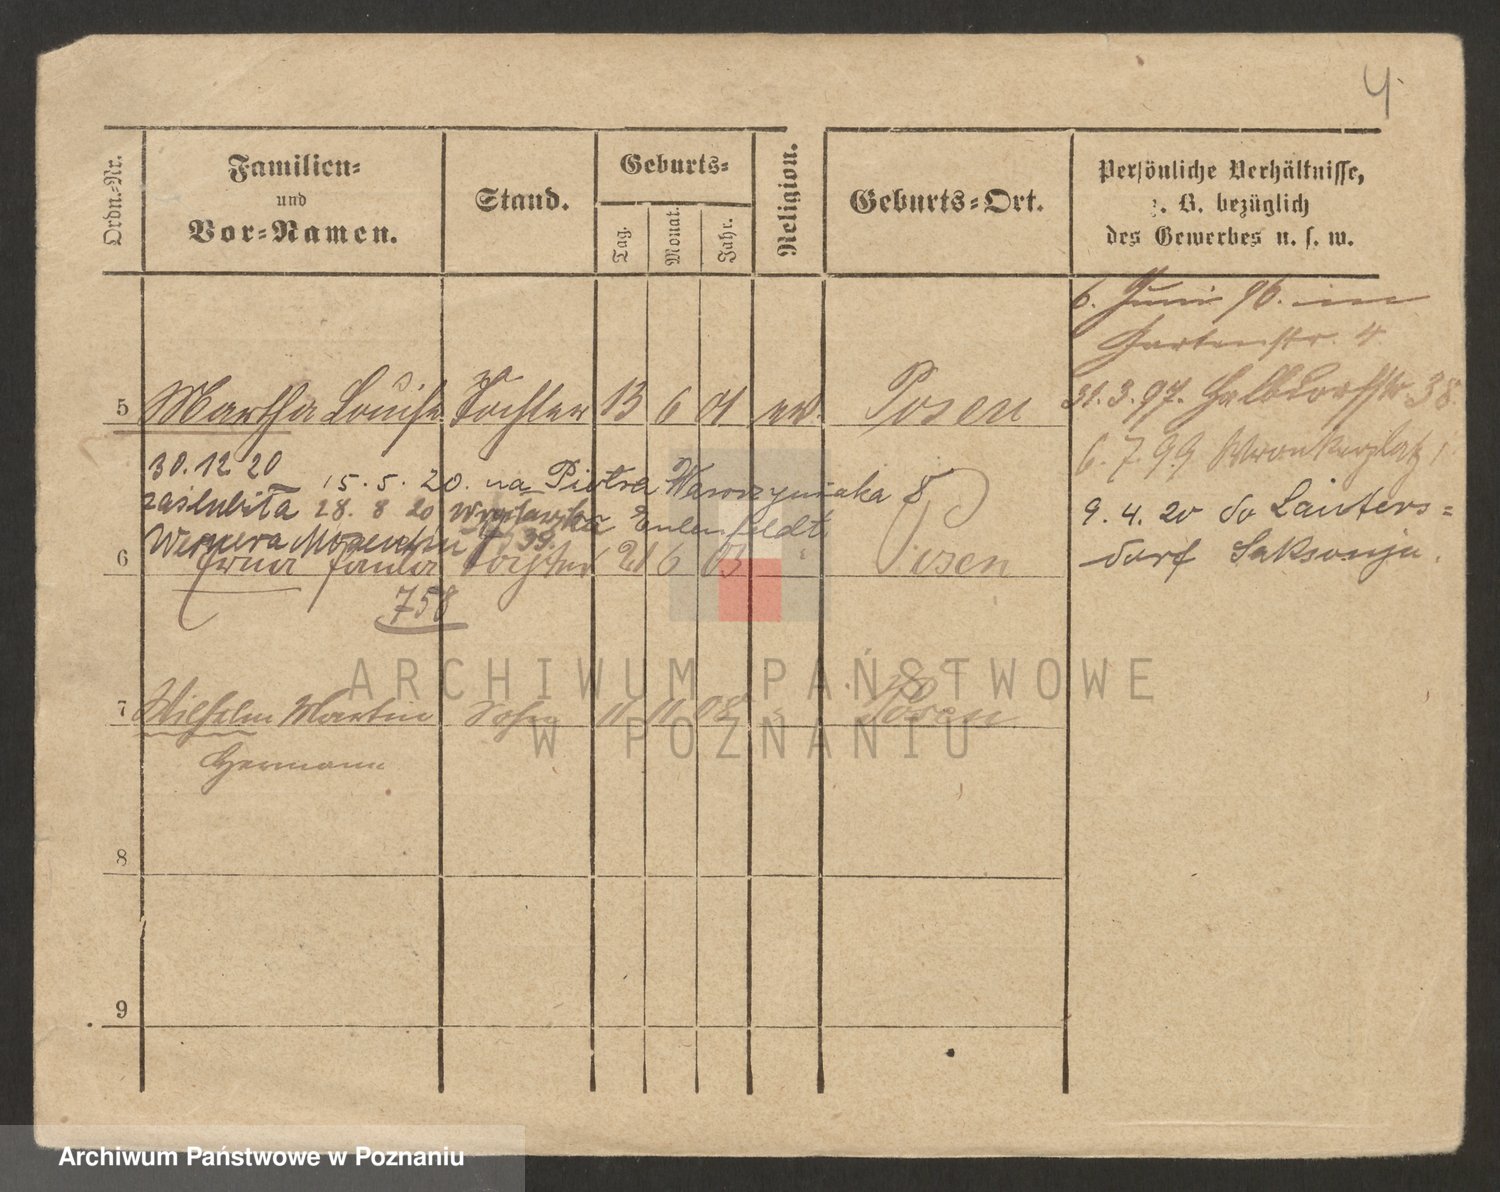 4.
Ordn.-Nr.
Familien-
und
Vor-Namen.
Stand.
Geburts-
Tag.
Monat.
Jahr.
Religion.
Geburts-Ort.
Persönliche Verhältnisse,
z. B. bezüglich
des Gewerbes u. s. w.
6. Juni 96. im
Gartenstr. 4
5 Martha Louise Tochter 13 6 01 ev. Posen
31.3.97. Halbdorfstr. 38
6.7.99 Wronkerplatz 1
30.12 20
15.5.20. na Piotra Wawrzyniaka 8
zaślubiła 28. 8 20
Eulenfeldt
Wernera 39.
9. 4. 20 do Lauters=
dorf Saksonja.
6 Erna Paula Tochter 21 6 03 Posen
758
7 Wilhelm Martin Sohn 11 11 08 Posen
Hermann
8
9
ARCHIWUM PAŃSTWOWE
W POZNANIU
Archiwum Państwowe w Poznaniu